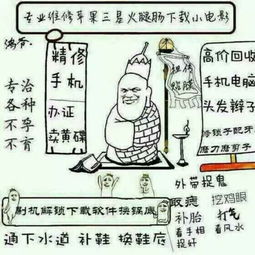 专业维修苹果三星火腿肠下载小电影
专治
各种
不孕
不育
精修
手机
办证
卖黄碟
祖传
贴膜
高价回收
手机电脑
头发辫子
修锁子配牙
磨刀磨剪子
刷机解锁下载软件换锅底
外带捉鬼
收痣 挖鸡眼
补胎 打气
看手相 看风水
捉奸
通下水道 补鞋 换鞋底